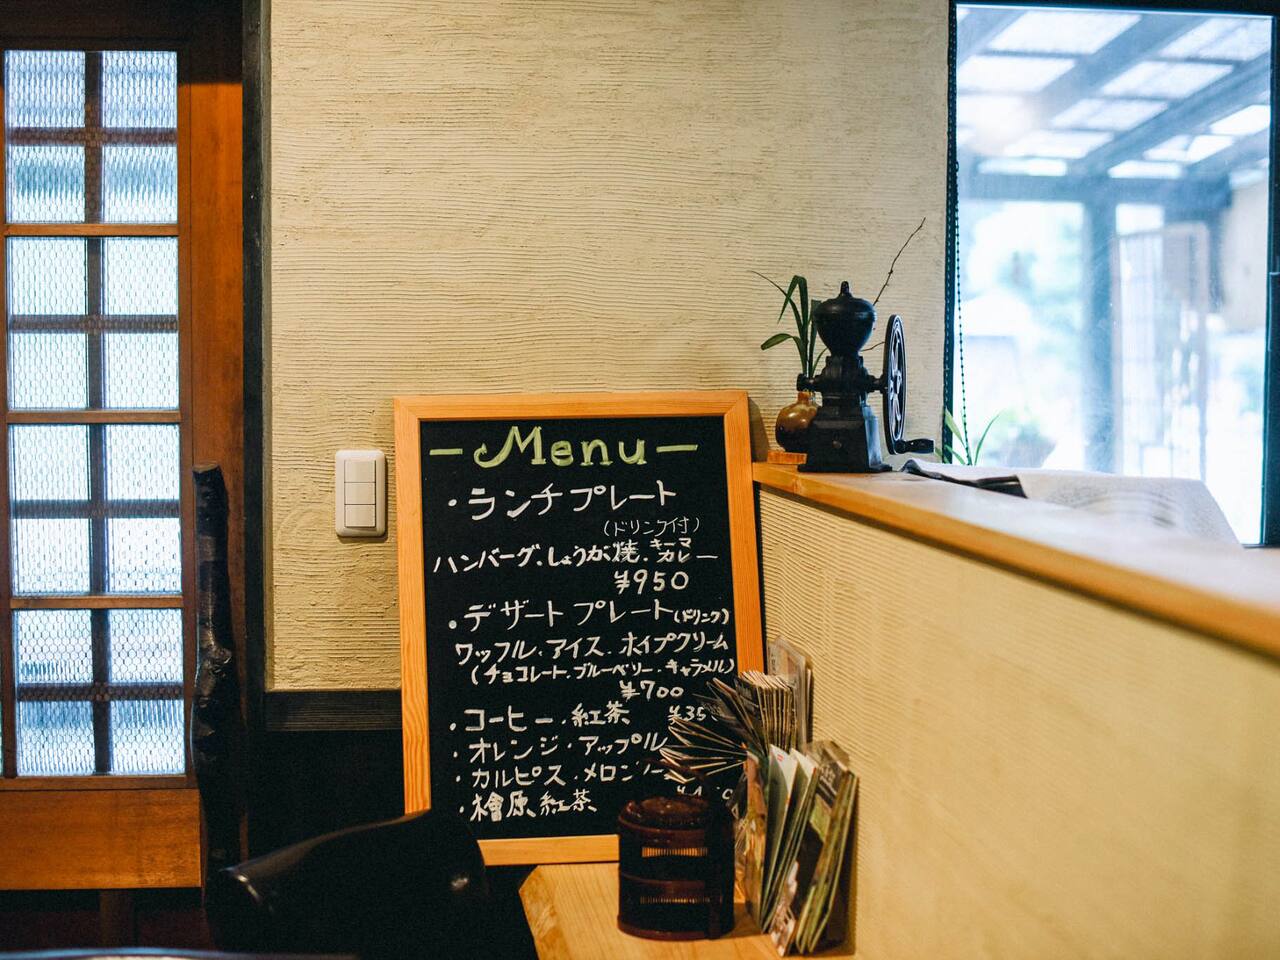 - Menu -
・ランチプレート
(ドリンク付)
ハンバーグ、しょうが焼、キーマカレー
¥950
・デザートプレート(ドリンク)
ワッフル、アイス、ホイップクリーム
(チョコレート、ブルーベリー、キャラメル)
¥700
・コーヒー・紅茶 ¥35
・オレンジ・アップル
・カルピス・メロン
・檜原紅茶